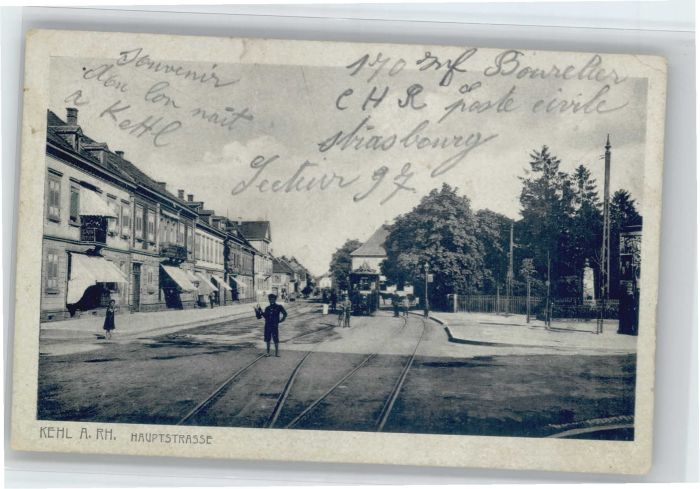 Souvenir
d'un bon nait
a Kehl
170 Inf Bourelier
CHR Poste civile
Strasbourg
Secteur 97
KEHL A. RH. HAUPTSTRASSE